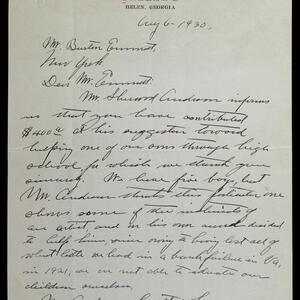 HELEN, GEORGIA
Aug 6 - 1930.
Mr. Burton Emmett,
New York
Dear Mr. Emmett:
Mr. Sherwood Anderson informs
us that you have contributed
$400 at his suggestion toward
helping one of our sons through high
school for which we thank you
sincerely. We have five boys but
Mr. Anderson thinks this particular one
shows some of the instincts of
an artist, and in his own mind decided
to help him, since owing to having lost all of
what little we had in a bank failure in Va,
in 1921, we are not able to educate our
children ourselves.
Mr. Anderson